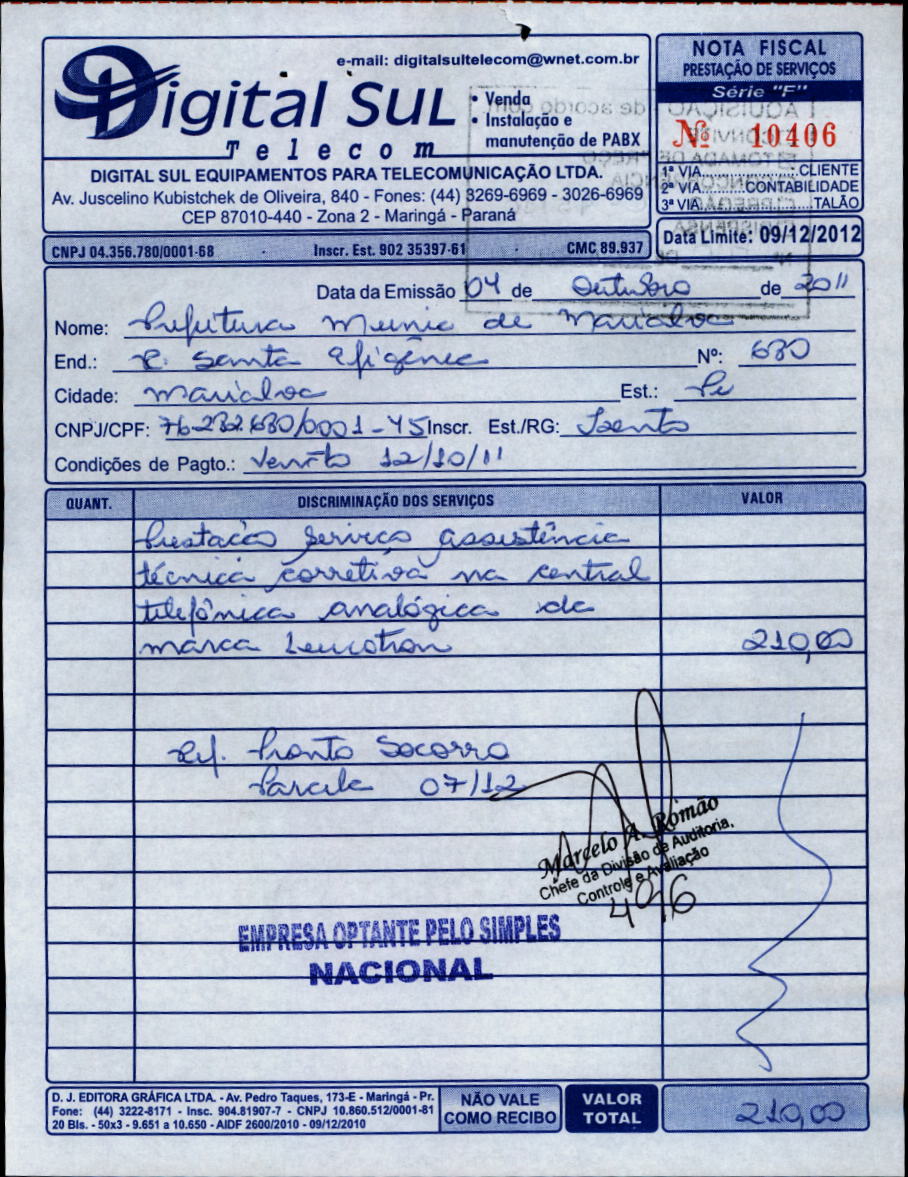 e-mail: digitalsultelecom@wnet.com.br
Digital Sul
Telecom
• Venda
• Instalação e
manutenção de PABX
DIGITAL SUL EQUIPAMENTOS PARA TELECOMUNICAÇÃO LTDA.
Av. Juscelino Kubistchek de Oliveira, 840 - Fones: (44) 3269-6969 - 3026-6969
CEP 87010-440 - Zona 2 - Maringá - Paraná
CNPJ 04.356.780/0001-68 · Inscr. Est. 902 35397-61 · CMC 89.937
NOTA FISCAL
PRESTAÇÃO DE SERVIÇOS
Série "F"
Nº 10406
1ª VIA..............CLIENTE
2ª VIA....CONTABILIDADE
3ª VIA.................TALÃO
Data Limite: 09/12/2012
Data da Emissão 04 de Outubro de 2011
Nome: Prefeitura Munic de Marialva
End.: R. Santa Efigênia Nº: 680
Cidade: Marialva Est.: Pr
CNPJ/CPF: 76.282.680/0001-45 Inscr. Est./RG: Isento
Condições de Pagto.: Vencto 12/10/11
QUANT. DISCRIMINAÇÃO DOS SERVIÇOS VALOR
Prestacão serviço assistência
técnica corretiva na central
telefônica analógica da
marca Leucotron 210,00
Ref. Pronto Socorro
Parcela 07/12
Marcelo A. Romão
Chefe da Divisão de Auditoria,
Controle e Avaliação
4096
EMPRESA OPTANTE PELO SIMPLES
NACIONAL
D. J. EDITORA GRÁFICA LTDA. - Av. Pedro Taques, 173-E - Maringá - Pr.
Fone: (44) 3222-8171 - Insc. 904.81907-7 - CNPJ 10.860.512/0001-81
20 Bls. - 50x3 - 9.651 a 10.650 - AIDF 2600/2010 - 09/12/2010
NÃO VALE
COMO RECIBO
VALOR
TOTAL
210,00